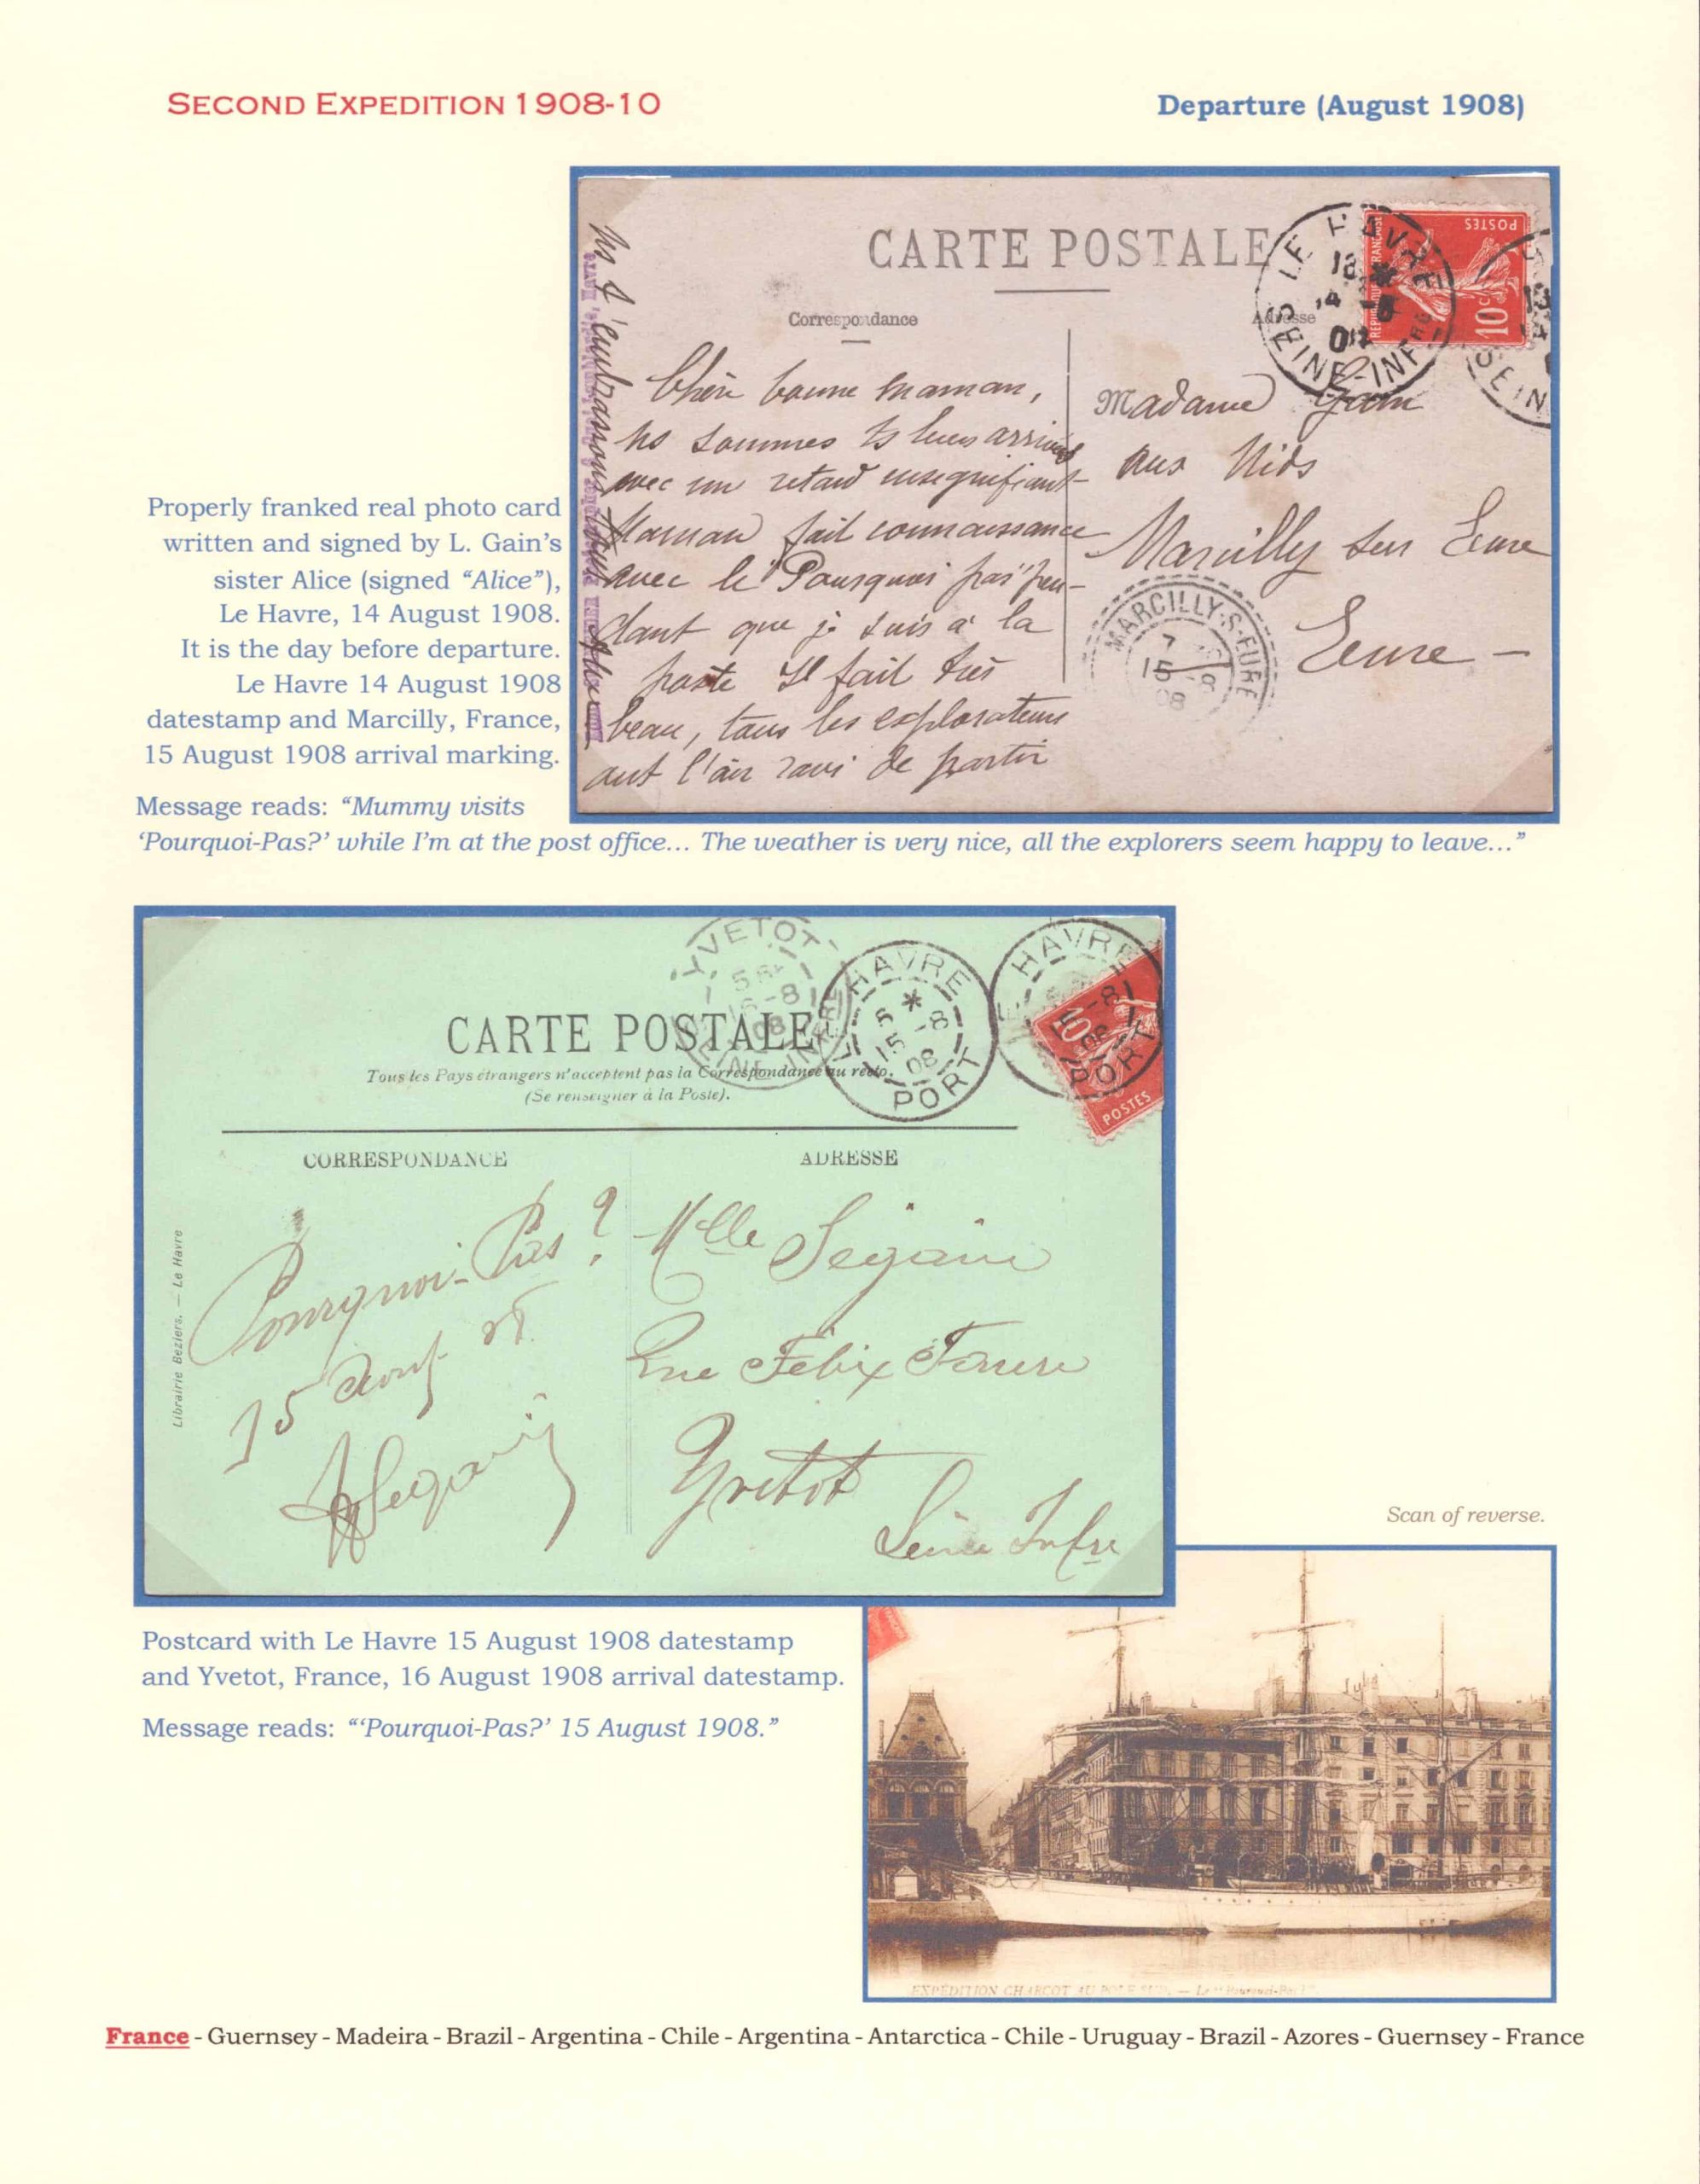 SECOND EXPEDITION 1908-10
Departure (August 1908)
CARTE POSTALE
Correspondance
Adresse
LE HAVRE
SEINE-INFRE
RÉPUBLIQUE FRANÇAISE
10c
POSTES
SEIN
Chère bonne maman,
ns sommes ts bien arrivés
avec un retard insignifiant
Maman fait connaissance
avec le Pourquoi pas? pen-
dant que je suis à la
poste Il fait très
beau, tous les explorateurs
ont l'air ravi de partir
Ns t'embrassons
Alice
Madame Gain
aux Nids
Marcilly sur Eure
Eure -
MARCILLY-S-EURE
7
15 -8
08
Properly franked real photo card
written and signed by L. Gain's
sister Alice (signed “Alice”),
Le Havre, 14 August 1908.
It is the day before departure.
Le Havre 14 August 1908
datestamp and Marcilly, France,
15 August 1908 arrival marking.
Message reads: “Mummy visits
‘Pourquoi-Pas?’ while I’m at the post office... The weather is very nice, all the explorers seem happy to leave...”
YVETOT
16-8
08
LE HAVRE
5 *
15 -8
08
PORT
LE HAVRE
-8
08
PORT
10
POSTES
CARTE POSTALE
Tous les Pays étrangers n'acceptent pas la Correspondance au recto.
(Se renseigner à la Poste).
CORRESPONDANCE
ADRESSE
Librairie Béziers. — Le Havre
Pourquoi-Pas?
15 Aout 08
Segain
Mlle Segain
Rue Félix Faure
Yvetot
Seine Infre
Scan of reverse.
Postcard with Le Havre 15 August 1908 datestamp
and Yvetot, France, 16 August 1908 arrival datestamp.
Message reads: “‘Pourquoi-Pas?’ 15 August 1908.”
EXPÉDITION CHARCOT AU POLE SUD. — Le "Pourquoi-Pas?"
France - Guernsey - Madeira - Brazil - Argentina - Chile - Argentina - Antarctica - Chile - Uruguay - Brazil - Azores - Guernsey - France